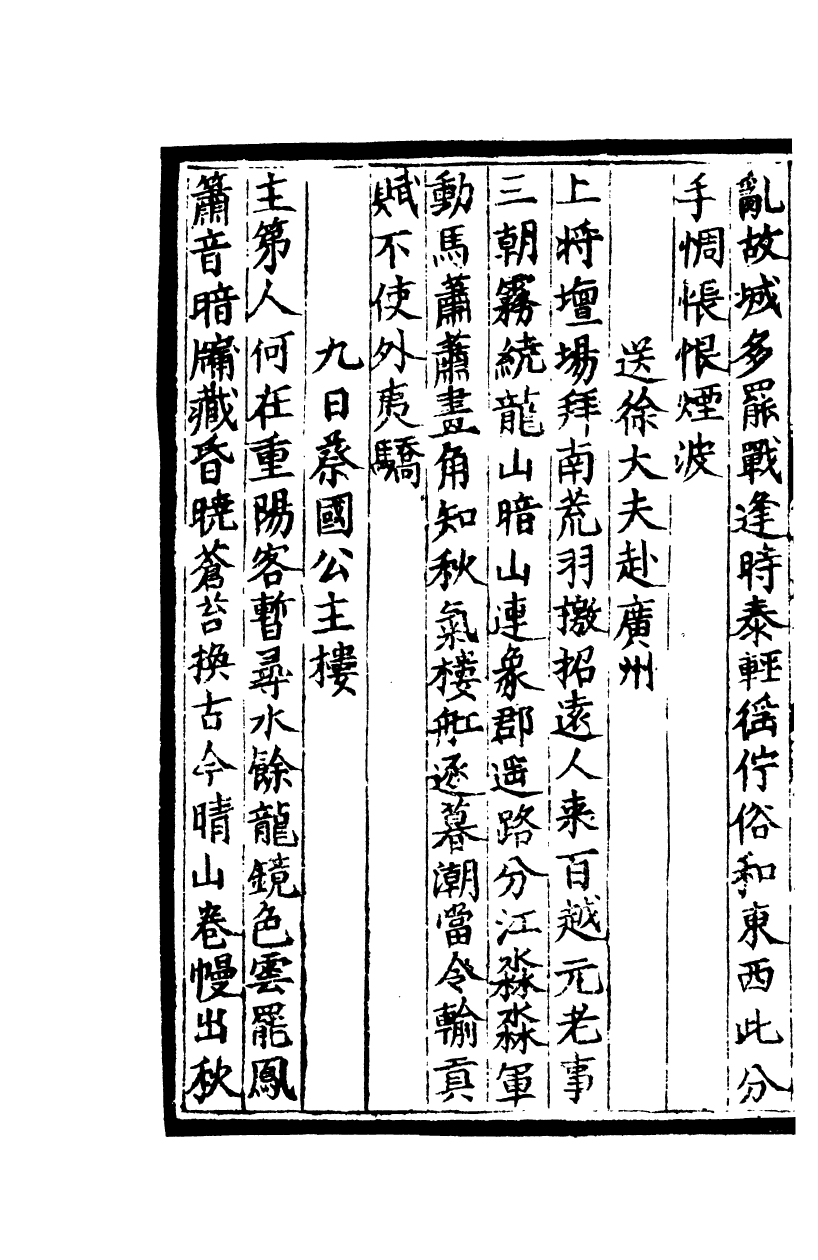 亂故城多罷戰逢時泰輕徭佇俗和東西此分
手惆悵恨煙波
送徐大夫赴廣州
上將壇場拜南荒羽檄招遠人來百越元老事
三朝霧繞龍山暗山連象郡遥路分江淼淼軍
動馬蕭蕭畫角知秋氣樓舡逐暮潮當令輸貢
賦不使外夷驕
九日蔡國公主樓
主第人何在重陽客暫尋水餘龍鏡色雲罷鳳
簫音暗牖藏昏曉蒼苔換古今晴山卷幔出秋